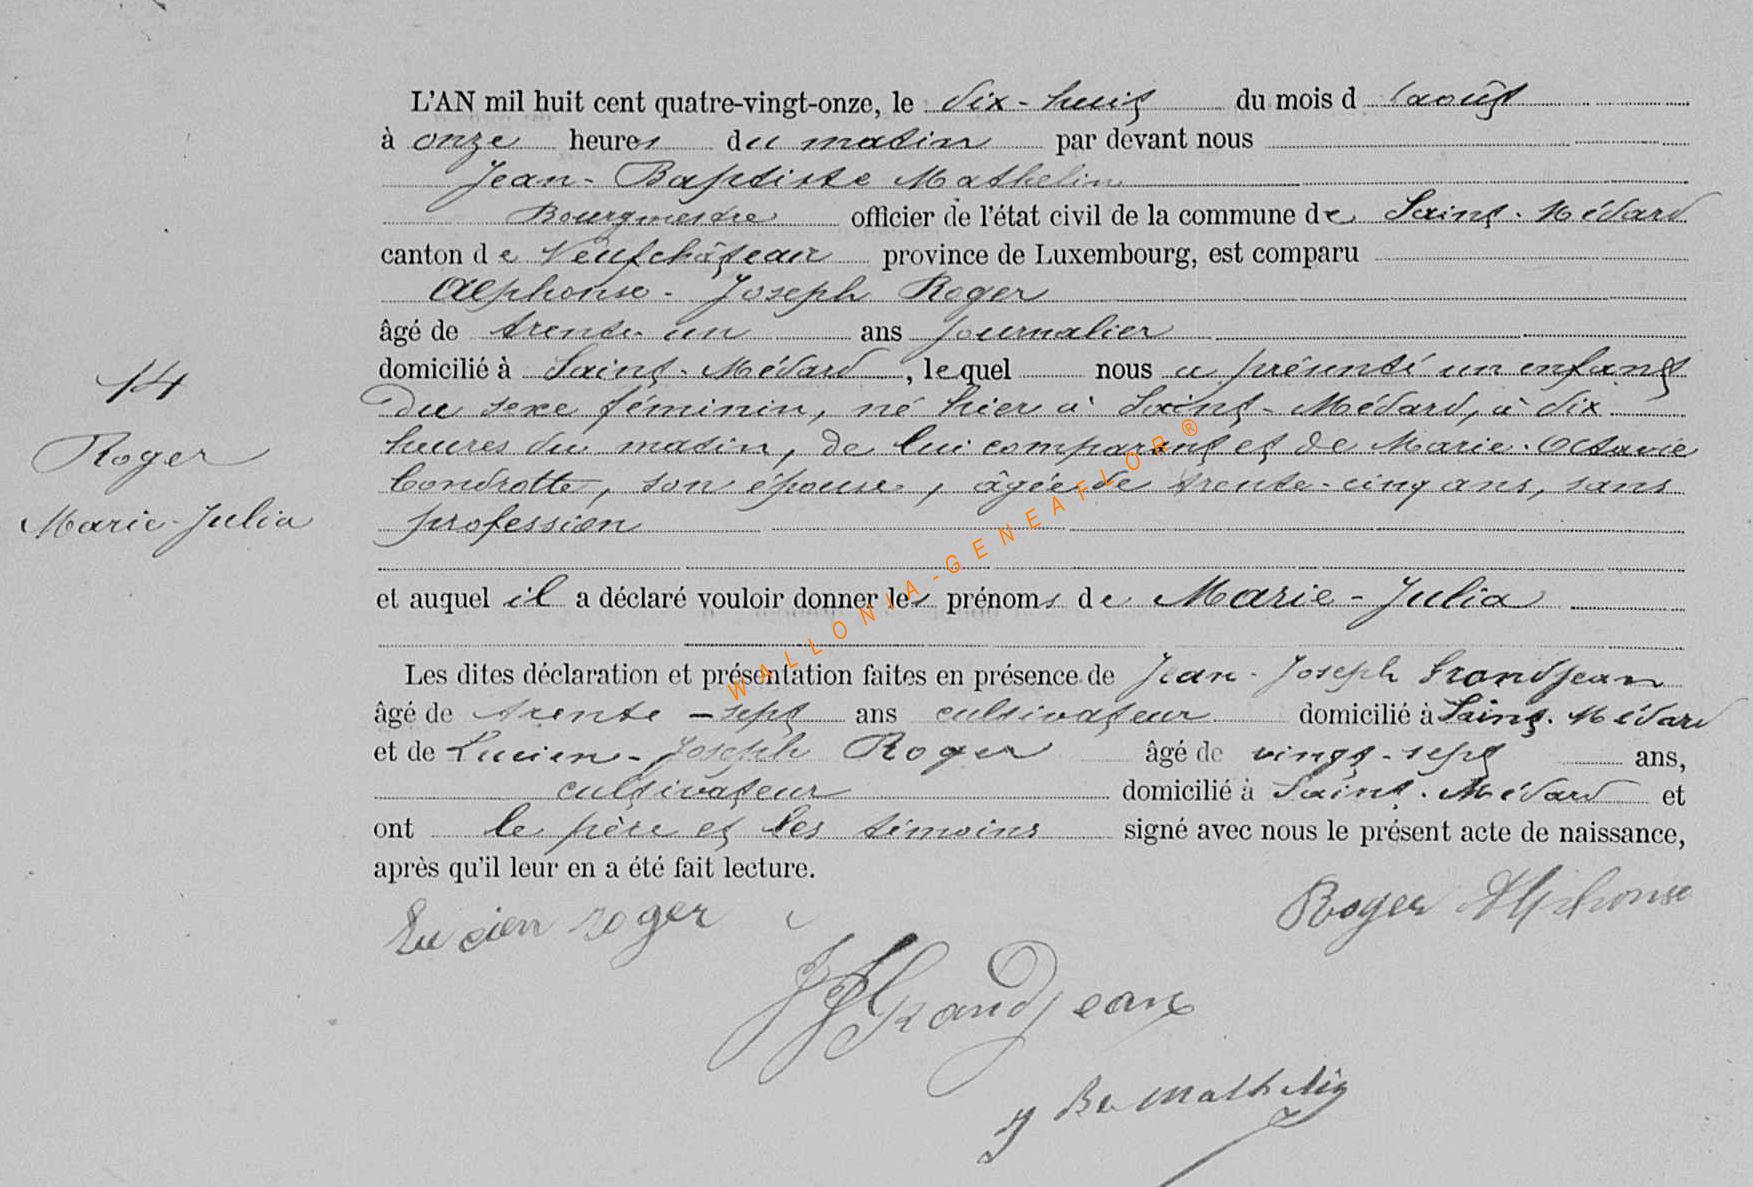 L'AN mil huit cent quatre-vingt-onze, le dix-huit du mois d'août
à onze heures du matin par devant nous
Jean-Baptiste Mathelin
Bourgmestre officier de l'état civil de la commune de Saint-Médard
canton de Neufchâteau province de Luxembourg, est comparu
Alphonse-Joseph Roger
âgé de trente-un ans journalier
domicilié à Saint-Médard, lequel nous a présenté un enfant
du sexe féminin, né hier à Saint-Médard, à dix
heures du matin, de lui comparant et de Marie-Octavie
Condrotte, son épouse, âgée de trente-cinq ans, sans
profession
et auquel il a déclaré vouloir donner les prénoms de Marie-Julia
Les dites déclaration et présentation faites en présence de Jean-Joseph Grandjean
âgé de trente-sept ans cultivateur domicilié à Saint-Médard
et de Lucien-Joseph Roger âgé de vingt-sept ans,
cultivateur domicilié à Saint-Médard et
ont le père et les témoins signé avec nous le présent acte de naissance,
après qu'il leur en a été fait lecture.
14
Roger
Marie-Julia
Lucien roger
Roger Alphonse
JJ Grandjean
J Bte Mathelin
WALLONIA-GENEAFLOR®